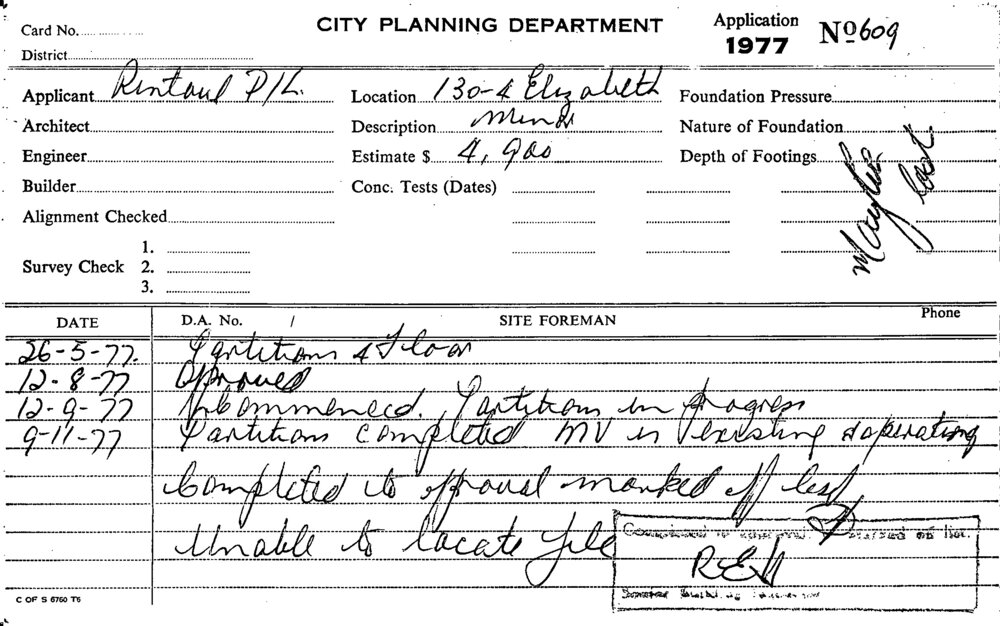 CITY PLANNING DEPARTMENT
Card No.
District
Application
1977
Nº 609
Applicant Rintoul P/L.
Location 130-4 Elizabeth
Foundation Pressure
Architect
Description Minor
Nature of Foundation
Engineer
Estimate $ 4,900
Depth of Footings
Builder
Conc. Tests (Dates)
Alignment Checked
Survey Check
1.
2.
3.
DATE D.A. No. / SITE FOREMAN Phone
26-5-77. Partitions 4 Floor
12-8-77 Approved
12-9-77 Partitions in progress
9-11-77 Partitions completed MV is existing & operating
Completed to approval marked off list
Unable to locate file
Completed to approval. marked off list.
REH
C OF S 6760 T6